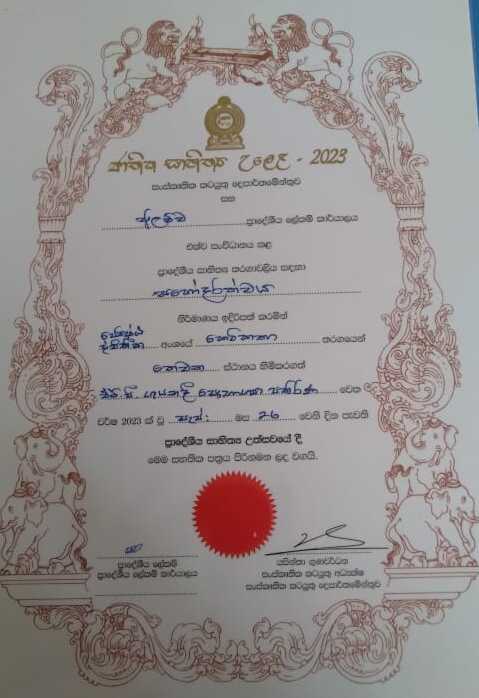 ජාතික සාහිත්‍ය උළෙල - 2023
සංස්කෘතික කටයුතු දෙපාර්තමේන්තුව
සහ
ප්‍රාදේශීය ලේකම් කාර්යාලය
එක්ව සංවිධානය කළ
ප්‍රාදේශීය සාහිත්‍ය තරගාවලිය සඳහා
සහෝදරත්වය
නිර්මාණය ඉදිරිපත් කරමින්
අංශයේ කෙටිකතා තරගයෙන්
තෙවන ස්ථානය හිමිකරගත්
වෙත
වර්ෂ 2023 ක් වූ සැප්: මස 26 වෙනි දින පැවති
ප්‍රාදේශීය සාහිත්‍ය උත්සවයේ දී
මෙම සහතික පත්‍රය පිරිනමන ලද වගයි.
ප්‍රාදේශීය ලේකම්
ප්‍රාදේශීය ලේකම් කාර්යාලය
යසින්තා ගුණවර්ධන
සංස්කෘතික කටයුතු අධ්‍යක්ෂ
සංස්කෘතික කටයුතු දෙපාර්තමේන්තුව